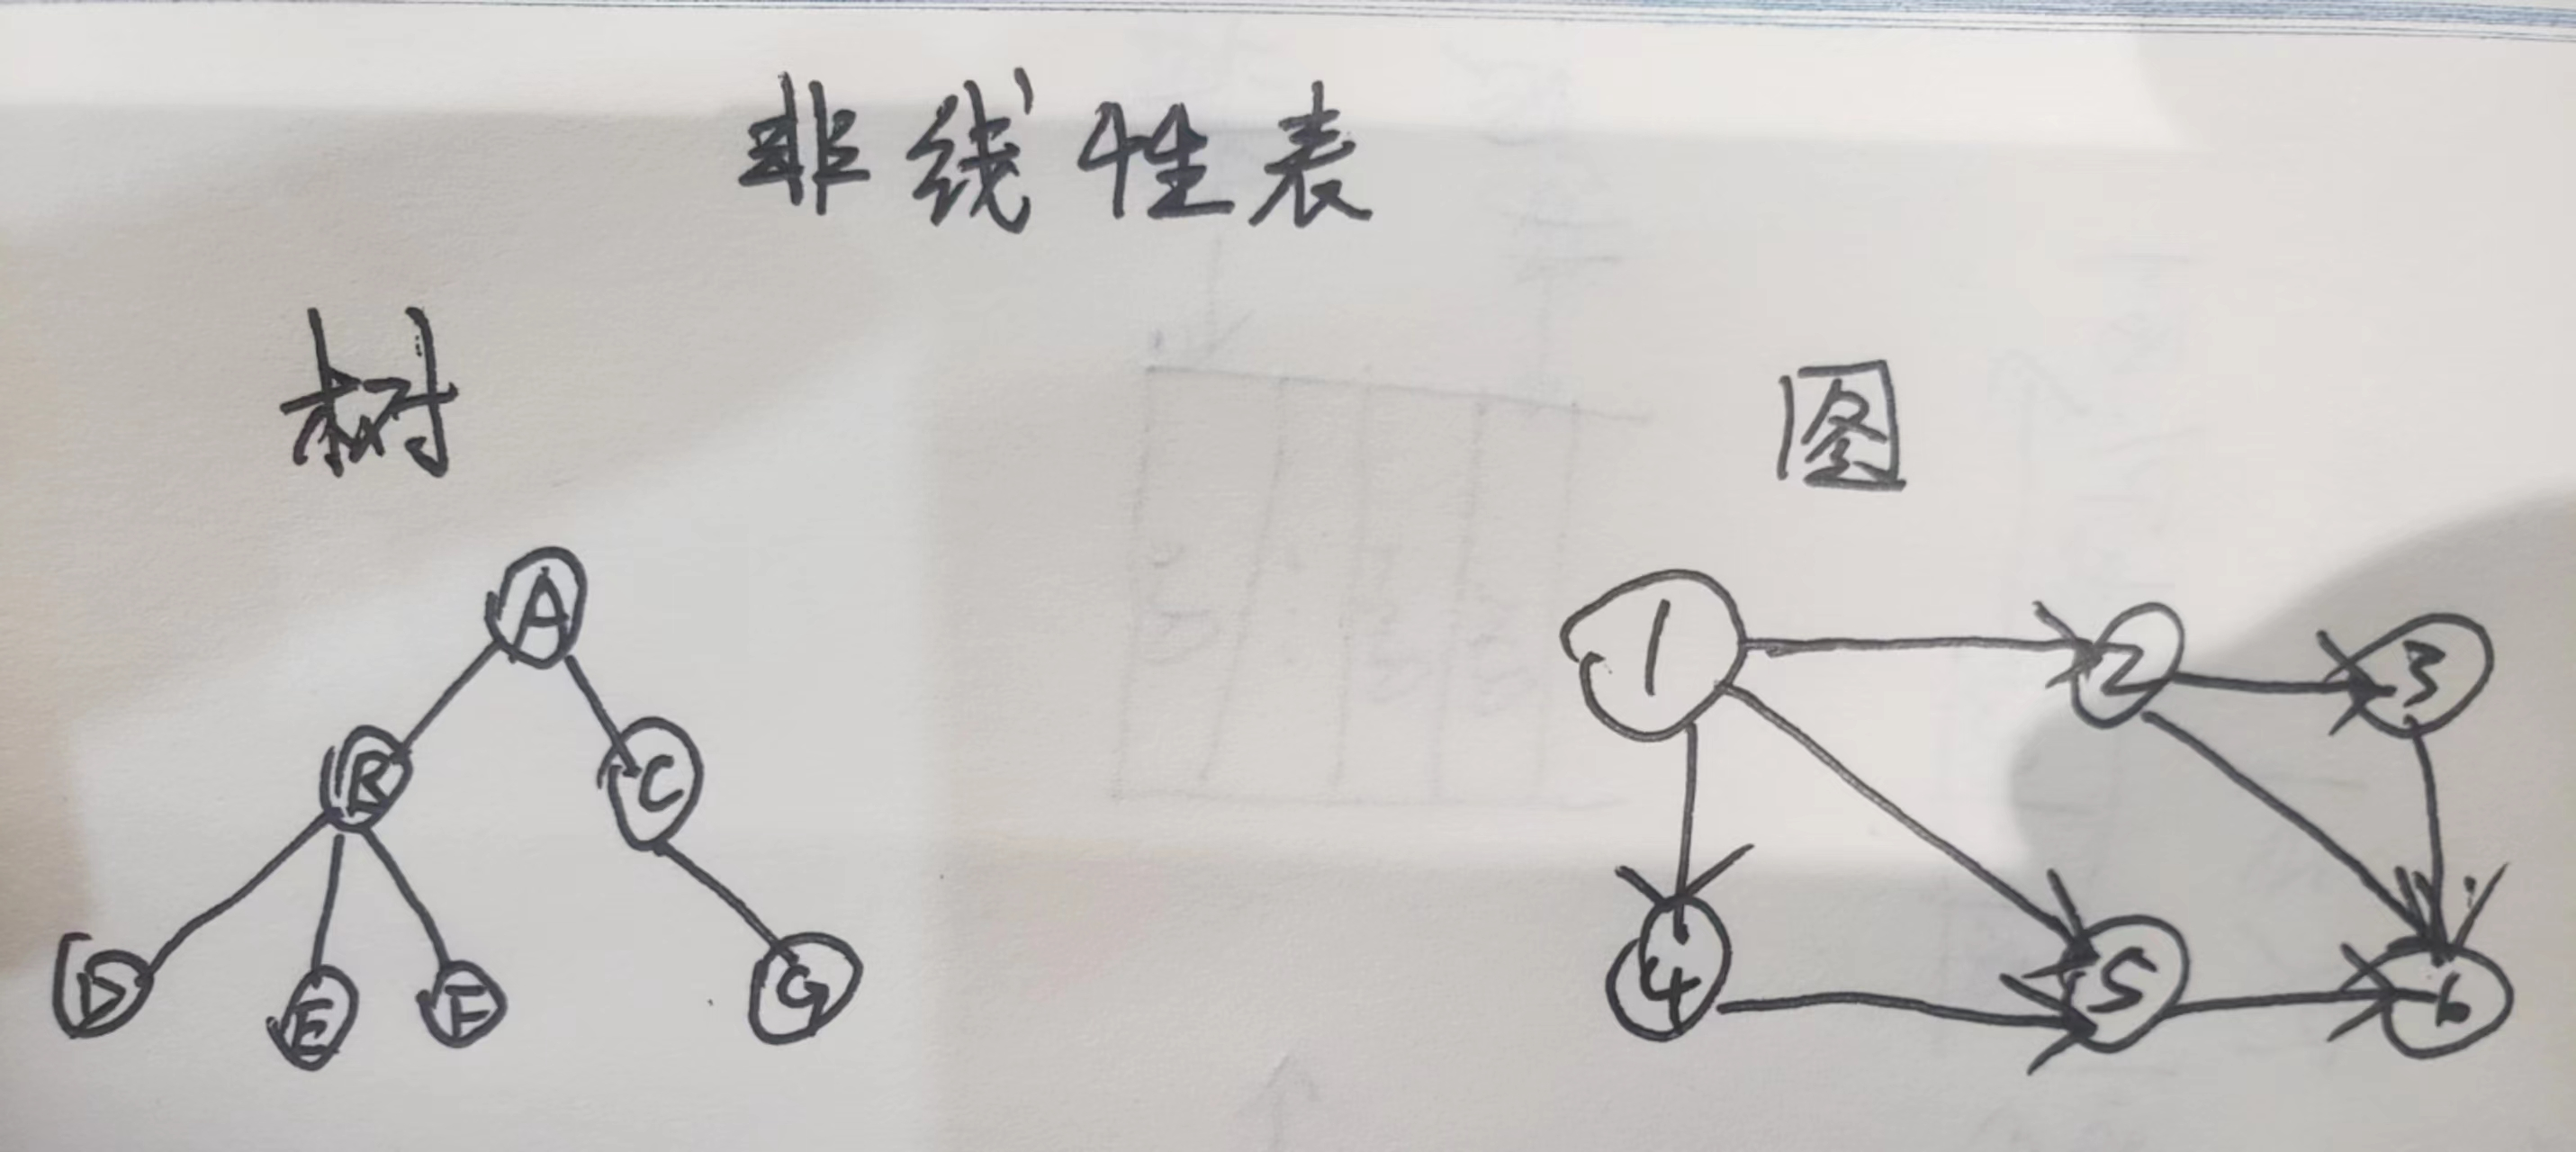 非线性表
树
图
A
B
C
D
E
F
G
1
2
3
4
5
6